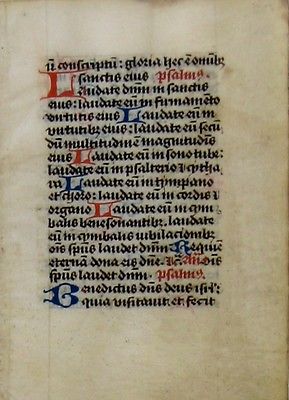 ū conscriptū: gloria hec ē omībꝫ
sanctis eius psalmus.
Laudate dnm in sanctis
eius: laudate eū in firmamēto
virtutis eius Laudate eū in
virtutibꝫ eius: laudate eū secū
dū multitudinē magnitudīs
eius Laudate eū in sono tube:
laudate eū in psalterio ⁊ cytha
ra Laudate eū in tympano
et choro: laudate eū in cordis ⁊
organo Laudate eū in cym
balis benesonantibꝫ. laudate
eū in cymbalis iubilacionibꝫ
oīs spūs laudet dnm Requiē
eternā dona eis dne. An oīs
spūs laudet dnm. psalmus.
Benedictus dns deus isrl:
quia visitauit et fecit